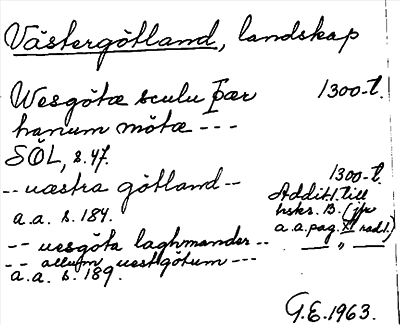 Västergötland, landskap
Wesgötæ sculu Þær 1300-t.
hanum mötæ ---
SÖL, s. 47.
-- uæstra götland -- 1300-t.
a.a. s. 184. Addit. 1. till
hskr. B. (jfr
a.a. pag. XI rad 1.)
-- uesgöta laghmander -- — " —
-- allum uestgötum ---
a.a. s. 189.
G.E. 1963.